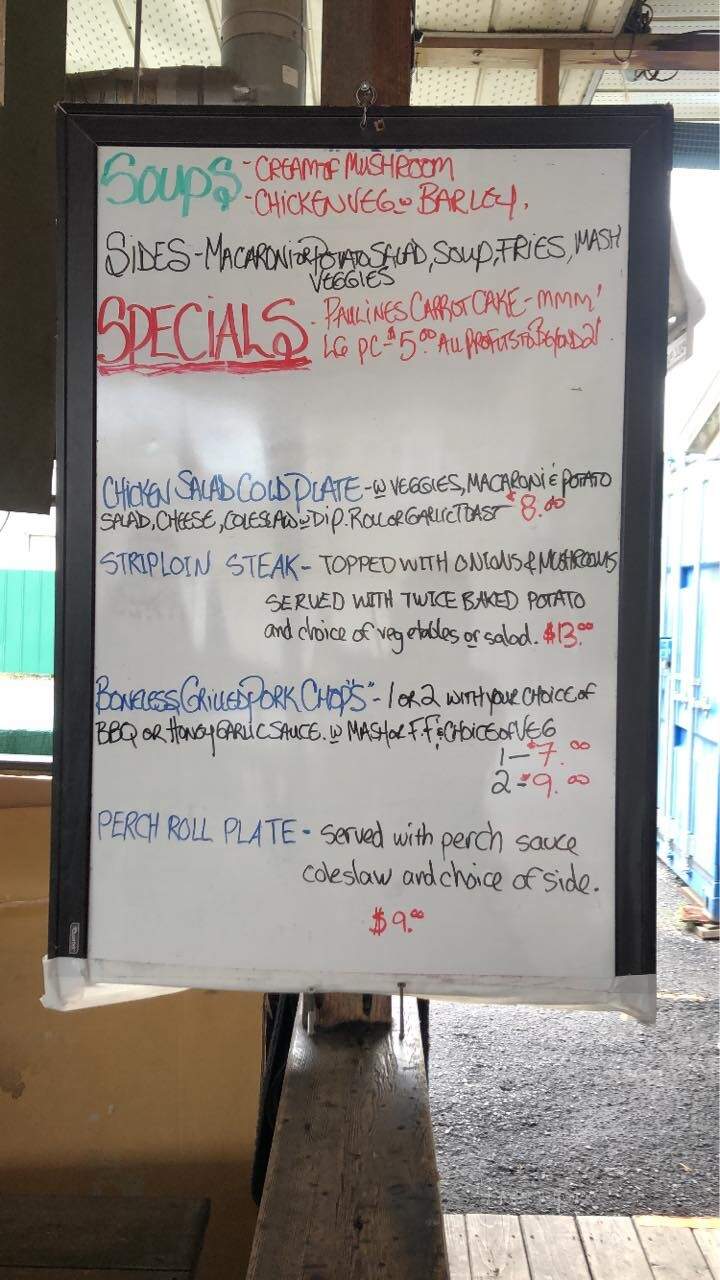 SOUPS - CREAM OF MUSHROOM
- CHICKEN VEG w BARLEY.
SIDES - MACARONI OR POTATO SALAD, SOUP, FRIES, MASH
VEGGIES
SPECIALS - PAULINES CARROT CAKE - MMM!
LG PC - $5.00 ALL PROFITS TO BEYOND 21
CHICKEN SALAD COLD PLATE - w VEGGIES, MACARONI & POTATO
SALAD, CHEESE, COLESLAW w DIP. ROLL OR GARLIC TOAST $8.00
STRIPLOIN STEAK - TOPPED WITH ONIONS & MUSHROOMS
SERVED WITH TWICE BAKED POTATO
and choice of vegetables or salad. $13.00
BONELESS GRILLED PORK CHOP"S" - 1 OR 2 WITH YOUR CHOICE OF
BBQ OR HONEY GARLIC SAUCE. w MASH OR F.F. & CHOICE OF VEG
1 - $7.00
2 - $9.00
PERCH ROLL PLATE - served with perch sauce
coleslaw and choice of side.
$9.00